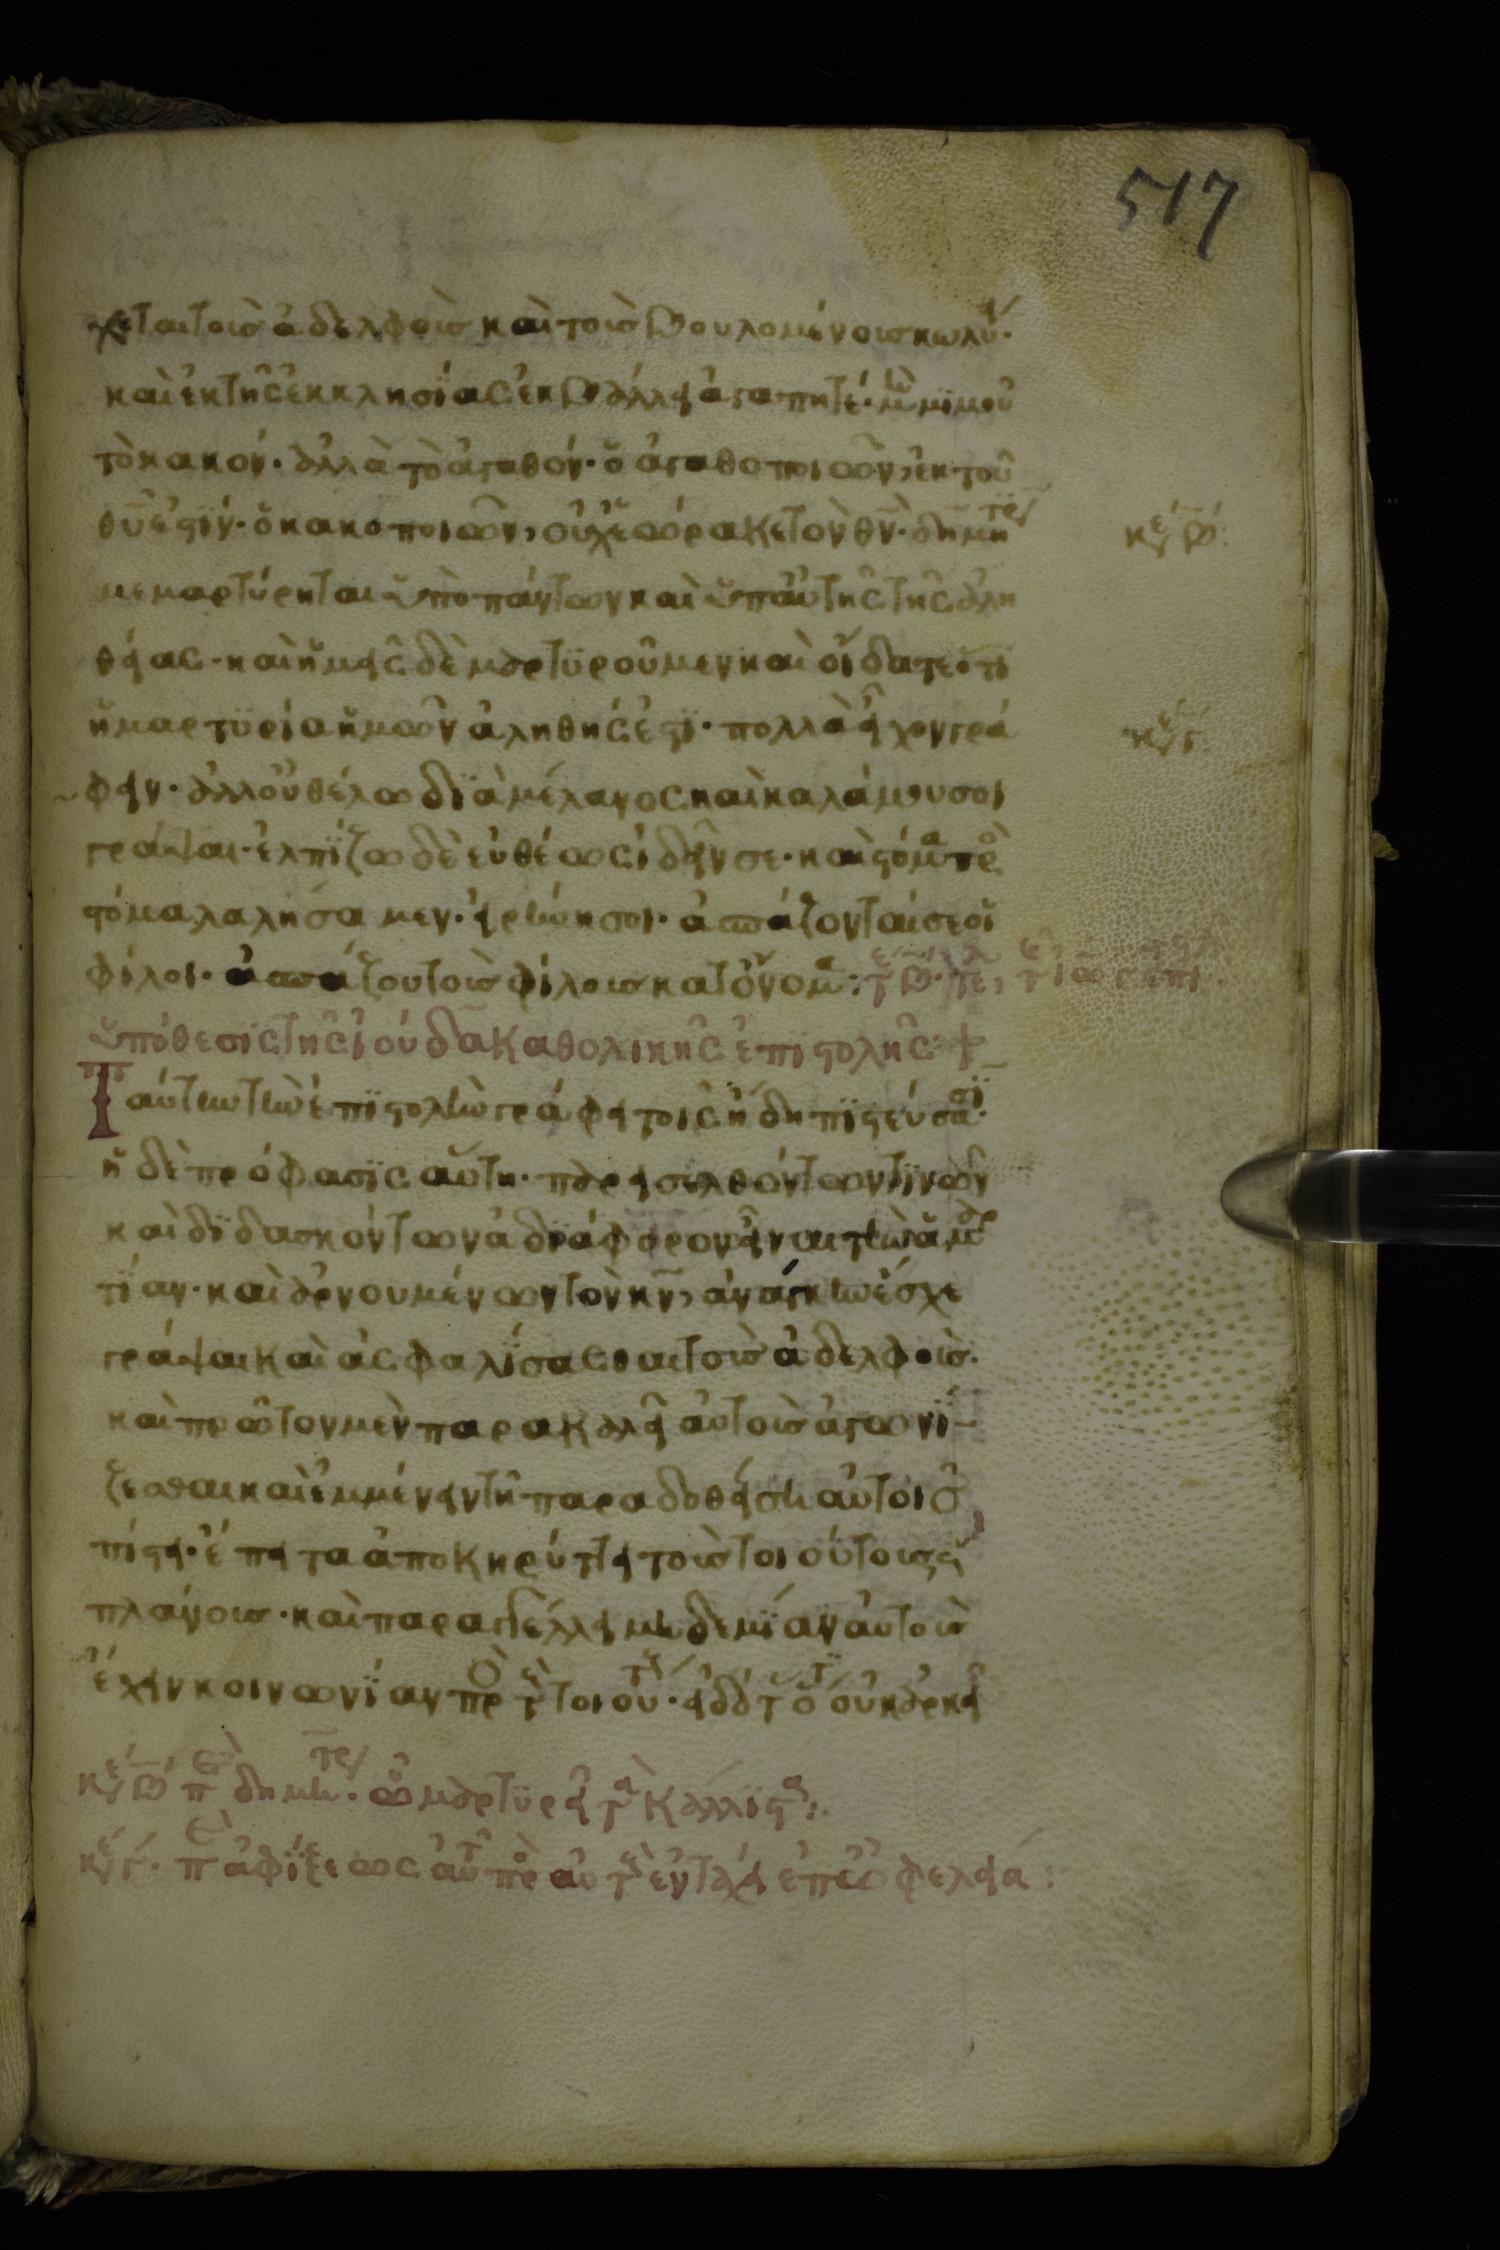 517
χεται τοὺς ἀδελφοὺς καὶ τοὺς βουλομένους κωλύει·
καὶ ἐκ τῆς ἐκκλησίας ἐκβάλλει ἀγαπητέ· μὴ μιμοῦ
τὸ κακόν· ἀλλὰ τὸ ἀγαθόν· ὁ ἀγαθοποιῶν, ἐκ τοῦ
θυ ἐστίν· ὁ κακοποιῶν, οὐχ ἑώρακε τὸν θν· δημη τρ
κε β
μεμαρτύρηται ὑπὸ πάντων καὶ ὑπ αὐτῆς τῆς ἀλη
θείας· καὶ ἡμεῖς δὲ μαρτυροῦμεν καὶ οἴδατε ὅτι
ἡ μαρτυρία ἡμῶν ἀληθής ἐστι· πολλὰ εἶχον γρά
κε γ
φειν· ἀλλ οὐ θέλω διὰ μέλανος καὶ καλάμου σοι
γράψαι· ἐλπίζω δὲ εὐθέως ἰδεῖν σε· καὶ στόμα πρὸ
στόμα λαλήσαμεν· εἰρήνη σοι· ἀσπάζονταί σε οἱ
φίλοι· ἀσπάζου τοὺς φίλους κατ ὄνομα:
ὑπόθεσις τῆς ἰούδα καθολικῆς ἐπιστολῆς
Ταύτην τὴν ἐπιστολὴν γράφει τοῖς ἤδη πιστεύσασι·
ἡ δὲ πρόφασις αὕτη· παρεισελθόντων τινῶν
καὶ διδασκόντων ἀδιάφορον εἶναι τὴν ἁμαρ
τίαν· καὶ ἀρνουμένων τὸν κν, ἀνάγκην ἔσχε
γράψαι καὶ ἀσφαλίσασθαι τοὺς ἀδελφούς·
καὶ πρῶτον μὲν παρακαλεῖ αὐτοὺς ἀγωνί
ζεσθαι καὶ ἐμμένειν τῇ παραδοθείσῃ αὐτοῖς
πίστει· ἔπειτα ἀποκηρύττει τοὺς τοιούτους ὡς
πλάνους· καὶ παραγγέλλει μηδεμίαν αὐτοὺς
ἔχειν κοινωνίαν πρὸ τοὺς τοιούτ· εἰδό τ ὅτι οὐκ ἀρκεῖ
κε β περὶ δημη τρ. ᾧ μαρτυρεῖ τὰ κάλλιστα:
κε γ. περὶ ἀφίξεως αὐτ πρὸ αὐτοὺς ἐν τάχει ἐπ ὠφελείᾳ: